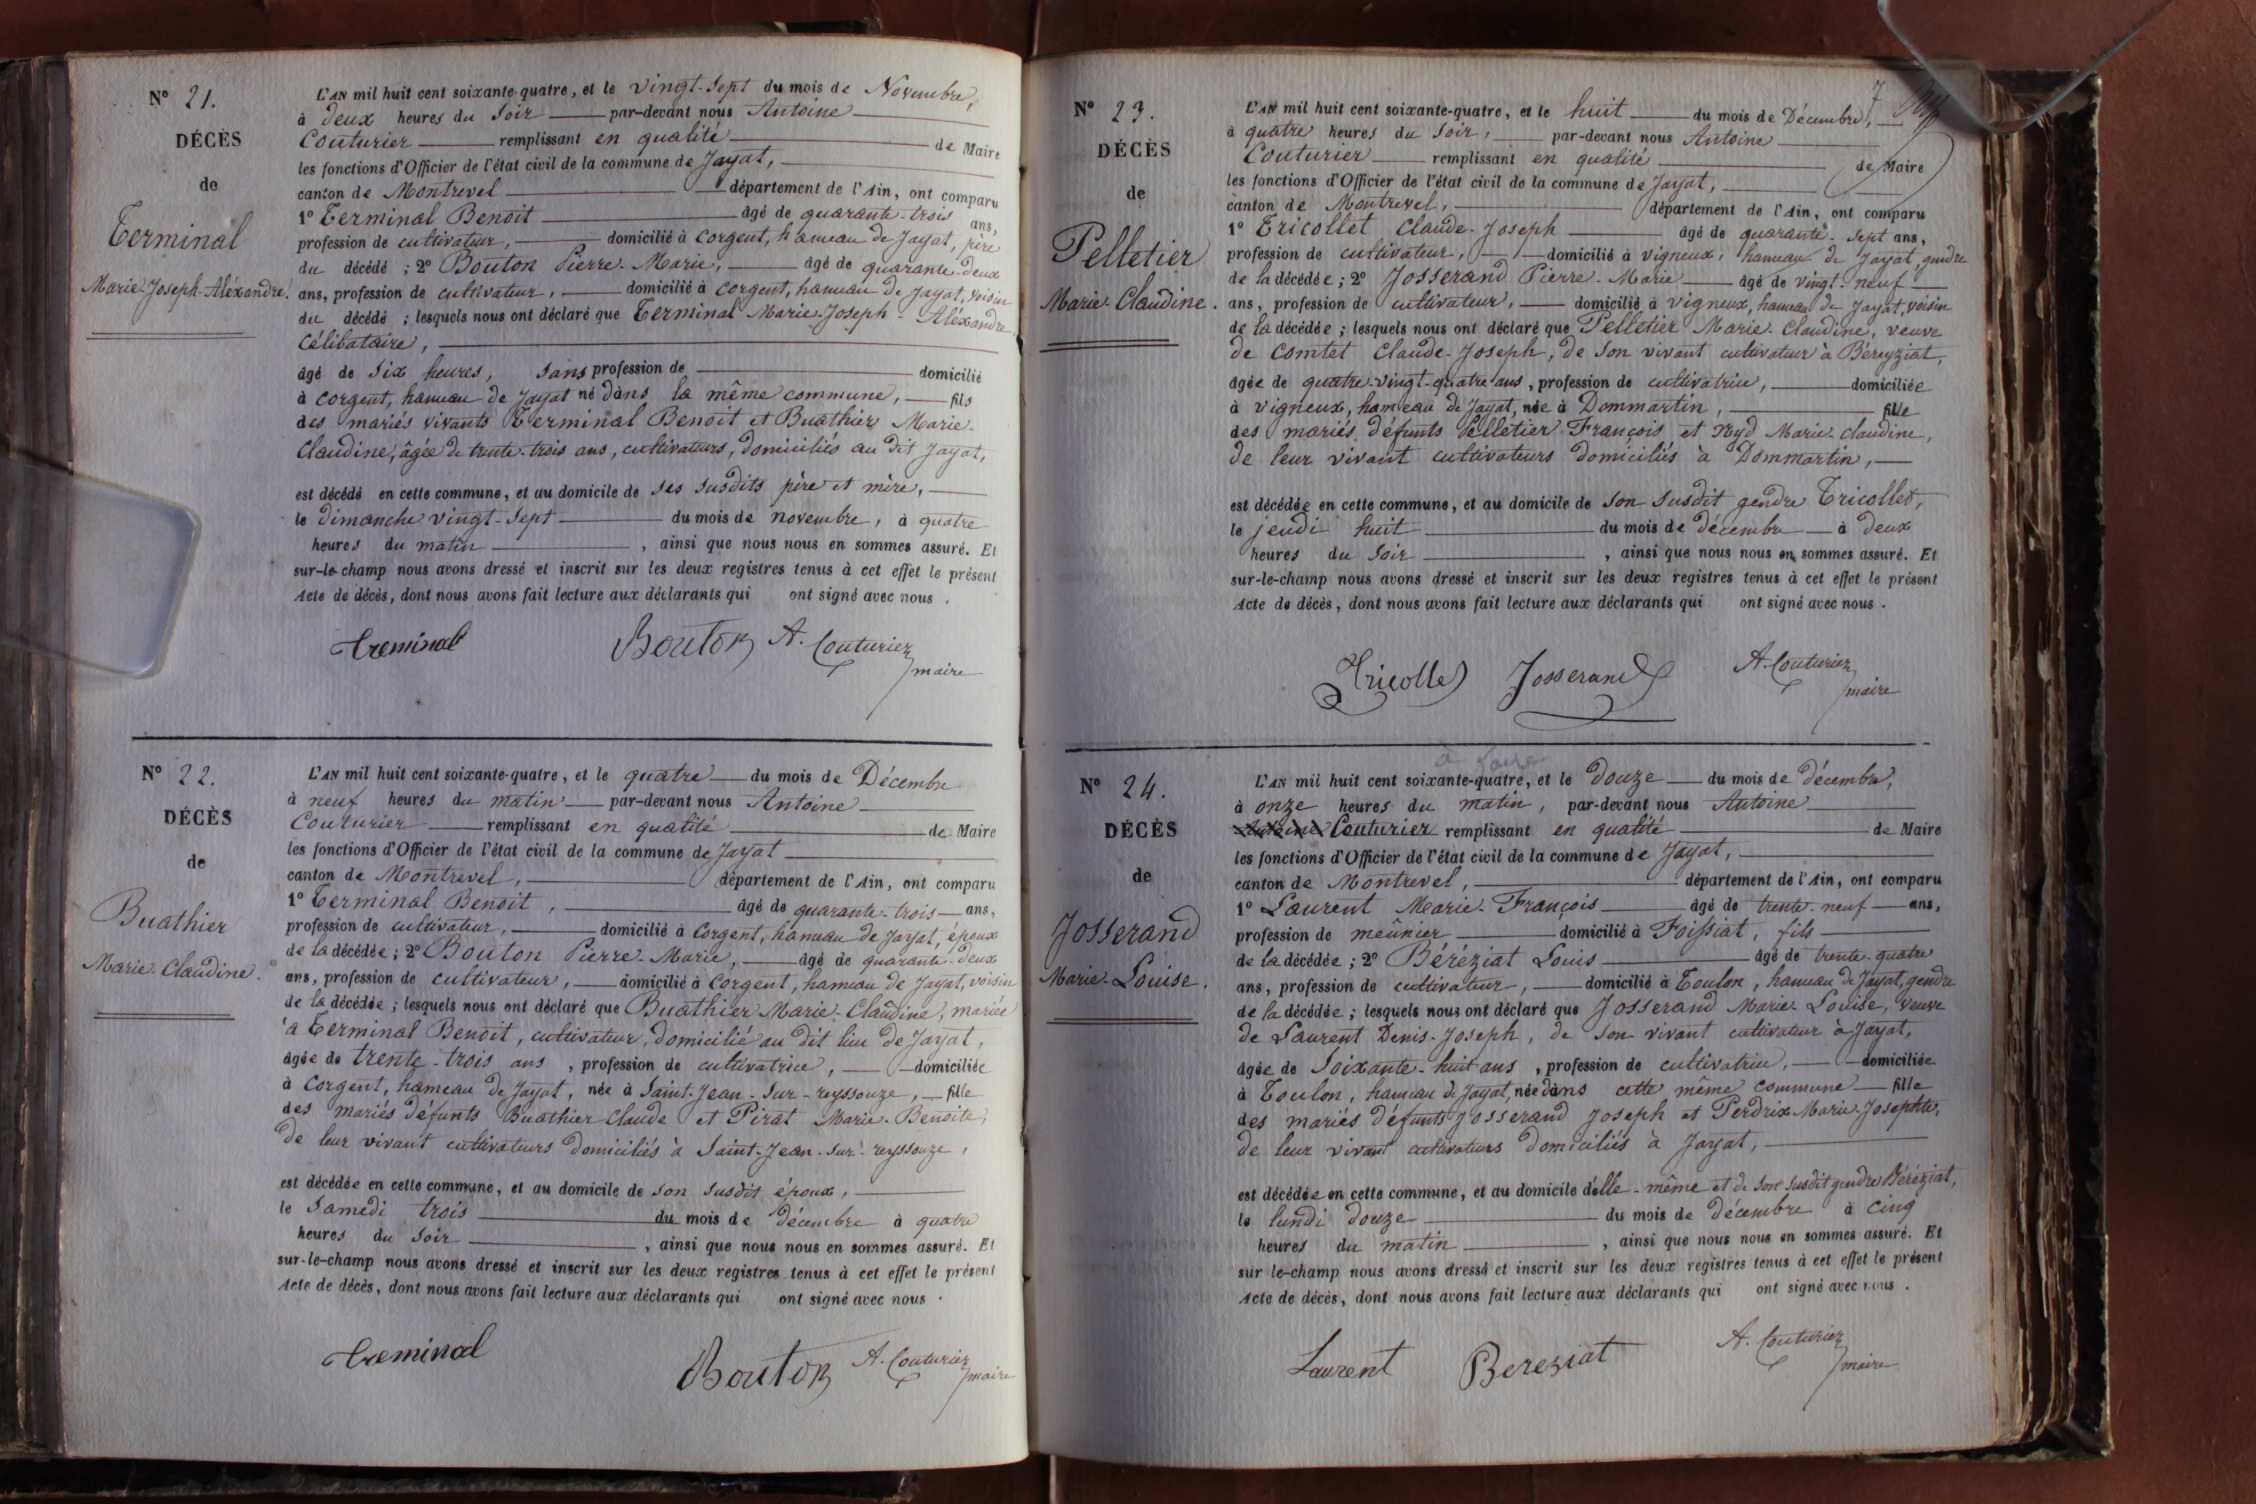 N° 21.
DÉCÈS
de
Terminal
Marie-Joseph-Aléxandre.
L'AN mil huit cent soixante-quatre, et le vingt-sept du mois de Novembre,
à deux heures du soir par-devant nous Antoine
Couturier remplissant en qualité de Maire
les fonctions d'Officier de l'état civil de la commune de Jayat,
canton de Montrevel département de l'Ain, ont comparu
1° Terminal Benoit âgé de quarante-trois ans,
profession de cultivateur, domicilié à Corgent, hameau de Jayat, père
du décédé ; 2° Bouton Pierre-Marie, âgé de quarante-deux
ans, profession de cultivateur, domicilié à Corgent, hameau de Jayat, voisin
du décédé ; lesquels nous ont déclaré que Terminal Marie-Joseph-Aléxandre
célibataire,
âgé de six heures, sans profession de domicilié
à Corgent, hameau de Jayat né dans la même commune, fils
des mariés vivants Terminal Benoit et Buathier Marie-
Claudine, âgée de trente-trois ans, cultivateurs, domiciliés au dit Jayat,
est décédé en cette commune, et au domicile de ses susdits père et mère,
le dimanche vingt-sept du mois de novembre, à quatre
heures du matin , ainsi que nous nous en sommes assuré. Et
sur-le-champ nous avons dressé et inscrit sur les deux registres tenus à cet effet le présent
Acte de décès, dont nous avons fait lecture aux déclarants qui ont signé avec nous.
Treminal Bouton A. Couturier
maire
N° 22.
DÉCÈS
de
Buathier
Marie-Claudine.
L'AN mil huit cent soixante-quatre, et le quatre du mois de Décembre
à neuf heures du matin par-devant nous Antoine
Couturier remplissant en qualité de Maire
les fonctions d'Officier de l'état civil de la commune de Jayat
canton de Montrevel, département de l'Ain, ont comparu
1° Terminal Benoit, âgé de quarante-trois ans,
profession de cultivateur, domicilié à Corgent, hameau de Jayat, époux
de la décédée ; 2° Bouton Pierre-Marie, âgé de quarante-deux
ans, profession de cultivateur, domicilié à Corgent, hameau de Jayat, voisin
de la décédée ; lesquels nous ont déclaré que Buathier Marie-Claudine, mariée
à Terminal Benoit, cultivateur, domicilié au dit lieu de Jayat,
âgée de trente-trois ans, profession de cultivatrice, domiciliée
à Corgent, hameau de Jayat, née à Saint-Jean-sur-reyssouze, fille
des mariés défunts Buathier Claude et Pirat Marie-Benoite,
de leur vivant cultivateurs domiciliés à Saint-Jean-sur-reyssouze,
est décédée en cette commune, et au domicile de son susdit époux,
le samedi trois du mois de décembre à quatre
heures du soir , ainsi que nous nous en sommes assuré. Et
sur-le-champ nous avons dressé et inscrit sur les deux registres tenus à cet effet le présent
Acte de décès, dont nous avons fait lecture aux déclarants qui ont signé avec nous.
Treminal Bouton A. Couturier
maire
7
N° 23.
DÉCÈS
de
Pelletier
Marie-Claudine.
L'AN mil huit cent soixante-quatre, et le huit du mois de Décembre,
à quatre heures du soir, par-devant nous Antoine
Couturier remplissant en qualité de Maire
les fonctions d'Officier de l'état civil de la commune de Jayat,
canton de Montrevel, département de l'Ain, ont comparu
1° Tricollet Claude-Joseph âgé de quarante-sept ans,
profession de cultivateur, domicilié à vigneux, hameau de Jayat, gendre
de la décédée ; 2° Josserand Pierre-Marie âgé de vingt-neuf
ans, profession de cultivateur, domicilié à vigneux, hameau de Jayat, voisin
de la décédée ; lesquels nous ont déclaré que Pelletier Marie-Claudine, veuve
de Comtet Claude-Joseph, de son vivant cultivateur à Béreyziat,
âgée de quatre-vingt-quatre ans, profession de cultivatrice, domiciliée
à vigneux, hameau de Jayat, née à Dommartin, fille
des mariés défunts Pelletier François et Nyd Marie-Claudine,
de leur vivant cultivateurs domiciliés à Dommartin,
est décédée en cette commune, et au domicile de son susdit gendre Tricollet,
le jeudi huit du mois de décembre à deux
heures du soir , ainsi que nous nous en sommes assuré. Et
sur-le-champ nous avons dressé et inscrit sur les deux registres tenus à cet effet le présent
Acte de décès, dont nous avons fait lecture aux déclarants qui ont signé avec nous.
Tricollet Josserand A. Couturier
maire
à faire
N° 24.
DÉCÈS
de
Josserand
Marie-Louise.
L'AN mil huit cent soixante-quatre, et le douze du mois de décembre,
à onze heures du matin, par-devant nous Antoine
Antoine Couturier remplissant en qualité de Maire
les fonctions d'Officier de l'état civil de la commune de Jayat,
canton de Montrevel, département de l'Ain, ont comparu
1° Laurent Marie-François âgé de trente-neuf ans,
profession de meûnier domicilié à Foissiat, fils
de la décédée ; 2° Béréziat Louis âgé de trente-quatre
ans, profession de cultivateur, domicilié à Toulon, hameau de Jayat, gendre
de la décédée ; lesquels nous ont déclaré que Josserand Marie-Louise, veuve
de Laurent Denis-Joseph, de son vivant cultivateur à Jayat,
âgée de soixante-huit ans, profession de cultivatrice, domiciliée
à Toulon, hameau de Jayat, née dans cette même commune fille
des mariés défunts Josserand Joseph et Perdrix Marie-Josephte,
de leur vivant cultivateurs domiciliés à Jayat,
est décédée en cette commune, et au domicile d'elle-même et de son susdit gendre Béréziat,
le lundi douze du mois de décembre à cinq
heures du matin , ainsi que nous nous en sommes assuré. Et
sur-le-champ nous avons dressé et inscrit sur les deux registres tenus à cet effet le présent
Acte de décès, dont nous avons fait lecture aux déclarants qui ont signé avec nous.
Laurent Bereziat A. Couturier
maire